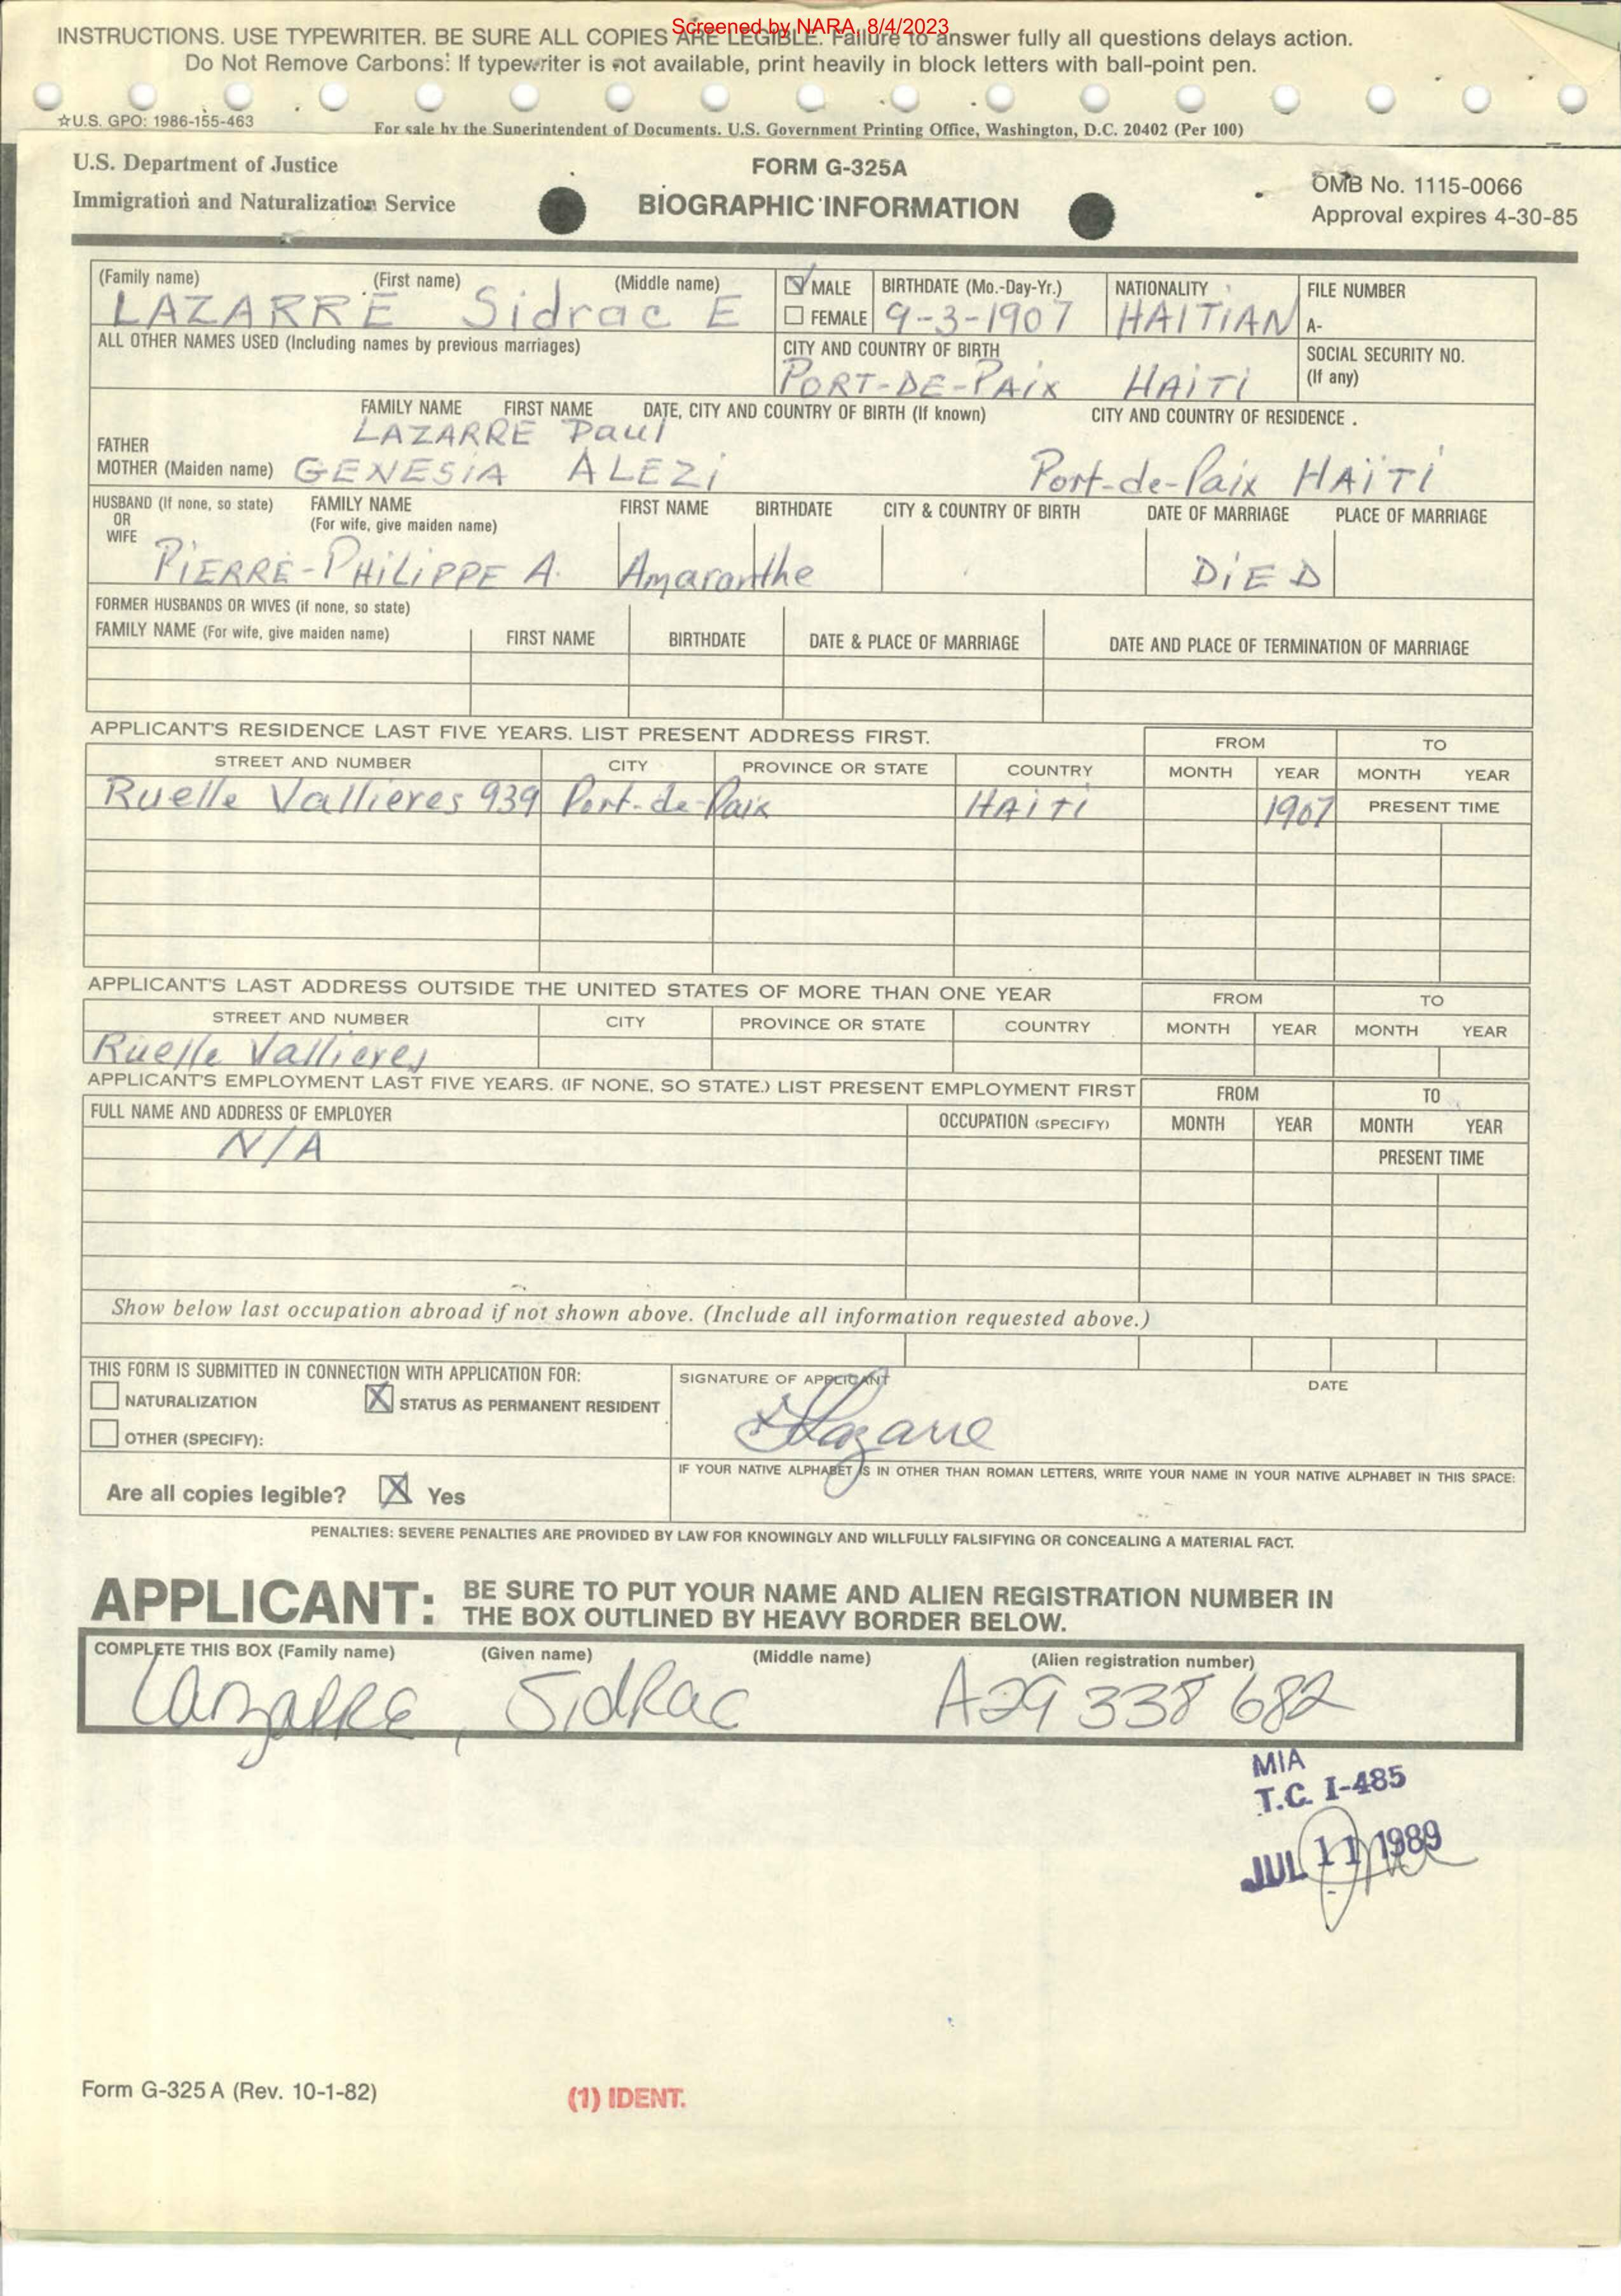 Screened by NARA, 8/4/2023
INSTRUCTIONS. USE TYPEWRITER. BE SURE ALL COPIES ARE LEGIBLE. Failure to answer fully all questions delays action.
Do Not Remove Carbons: If typewriter is not available, print heavily in block letters with ball-point pen.
☆U.S. GPO: 1986-155-463
For sale by the Superintendent of Documents. U.S. Government Printing Office, Washington, D.C. 20402 (Per 100)
U.S. Department of Justice
Immigration and Naturalization Service
FORM G-325A
BIOGRAPHIC INFORMATION
OMB No. 1115-0066
Approval expires 4-30-85
(Family name) (First name) (Middle name)
LAZARRE Sidrac E
MALE
FEMALE
BIRTHDATE (Mo.-Day-Yr.)
9-3-1907
NATIONALITY
HAITIAN
FILE NUMBER
A-
ALL OTHER NAMES USED (Including names by previous marriages)
CITY AND COUNTRY OF BIRTH
PORT-DE-PAix HAiTi
SOCIAL SECURITY NO.
(If any)
FAMILY NAME FIRST NAME DATE, CITY AND COUNTRY OF BIRTH (If known) CITY AND COUNTRY OF RESIDENCE
FATHER LAZARRE Paul
MOTHER (Maiden name) GENESiA ALEZi Port-de-Paix HAÏTi
HUSBAND (If none, so state) OR WIFE
FAMILY NAME (For wife, give maiden name) FIRST NAME BIRTHDATE CITY & COUNTRY OF BIRTH DATE OF MARRIAGE PLACE OF MARRIAGE
PiERRE-PHiLiPPE A. Amaranthe DiED
FORMER HUSBANDS OR WIVES (if none, so state)
FAMILY NAME (For wife, give maiden name) FIRST NAME BIRTHDATE DATE & PLACE OF MARRIAGE DATE AND PLACE OF TERMINATION OF MARRIAGE
APPLICANT'S RESIDENCE LAST FIVE YEARS. LIST PRESENT ADDRESS FIRST. FROM TO
STREET AND NUMBER CITY PROVINCE OR STATE COUNTRY MONTH YEAR MONTH YEAR
Ruelle Vallieres 939 Port-de-Paix HAiTi 1907 PRESENT TIME
APPLICANT'S LAST ADDRESS OUTSIDE THE UNITED STATES OF MORE THAN ONE YEAR FROM TO
STREET AND NUMBER CITY PROVINCE OR STATE COUNTRY MONTH YEAR MONTH YEAR
Ruelle Vallieres
APPLICANT'S EMPLOYMENT LAST FIVE YEARS. (IF NONE, SO STATE.) LIST PRESENT EMPLOYMENT FIRST FROM TO
FULL NAME AND ADDRESS OF EMPLOYER OCCUPATION (SPECIFY) MONTH YEAR MONTH YEAR
N/A PRESENT TIME
Show below last occupation abroad if not shown above. (Include all information requested above.)
THIS FORM IS SUBMITTED IN CONNECTION WITH APPLICATION FOR:
NATURALIZATION X STATUS AS PERMANENT RESIDENT
OTHER (SPECIFY):
SIGNATURE OF APPLICANT DATE
Lazarre
Are all copies legible? X Yes
IF YOUR NATIVE ALPHABET IS IN OTHER THAN ROMAN LETTERS, WRITE YOUR NAME IN YOUR NATIVE ALPHABET IN THIS SPACE:
PENALTIES: SEVERE PENALTIES ARE PROVIDED BY LAW FOR KNOWINGLY AND WILLFULLY FALSIFYING OR CONCEALING A MATERIAL FACT.
APPLICANT: BE SURE TO PUT YOUR NAME AND ALIEN REGISTRATION NUMBER IN
THE BOX OUTLINED BY HEAVY BORDER BELOW.
COMPLETE THIS BOX (Family name) (Given name) (Middle name) (Alien registration number)
Lazarre, Sidrac A29 338 682
MIA
T.C. I-485
JUL 11 1989
Form G-325 A (Rev. 10-1-82)
(1) IDENT.